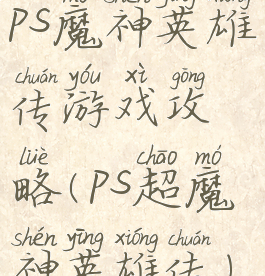 mó shén yīng xióng
PS魔神英雄
chuán yóu xì gōng
传游戏攻
lüè chāo mó
略(PS超魔
shén yīng xióng chuán
神英雄传)